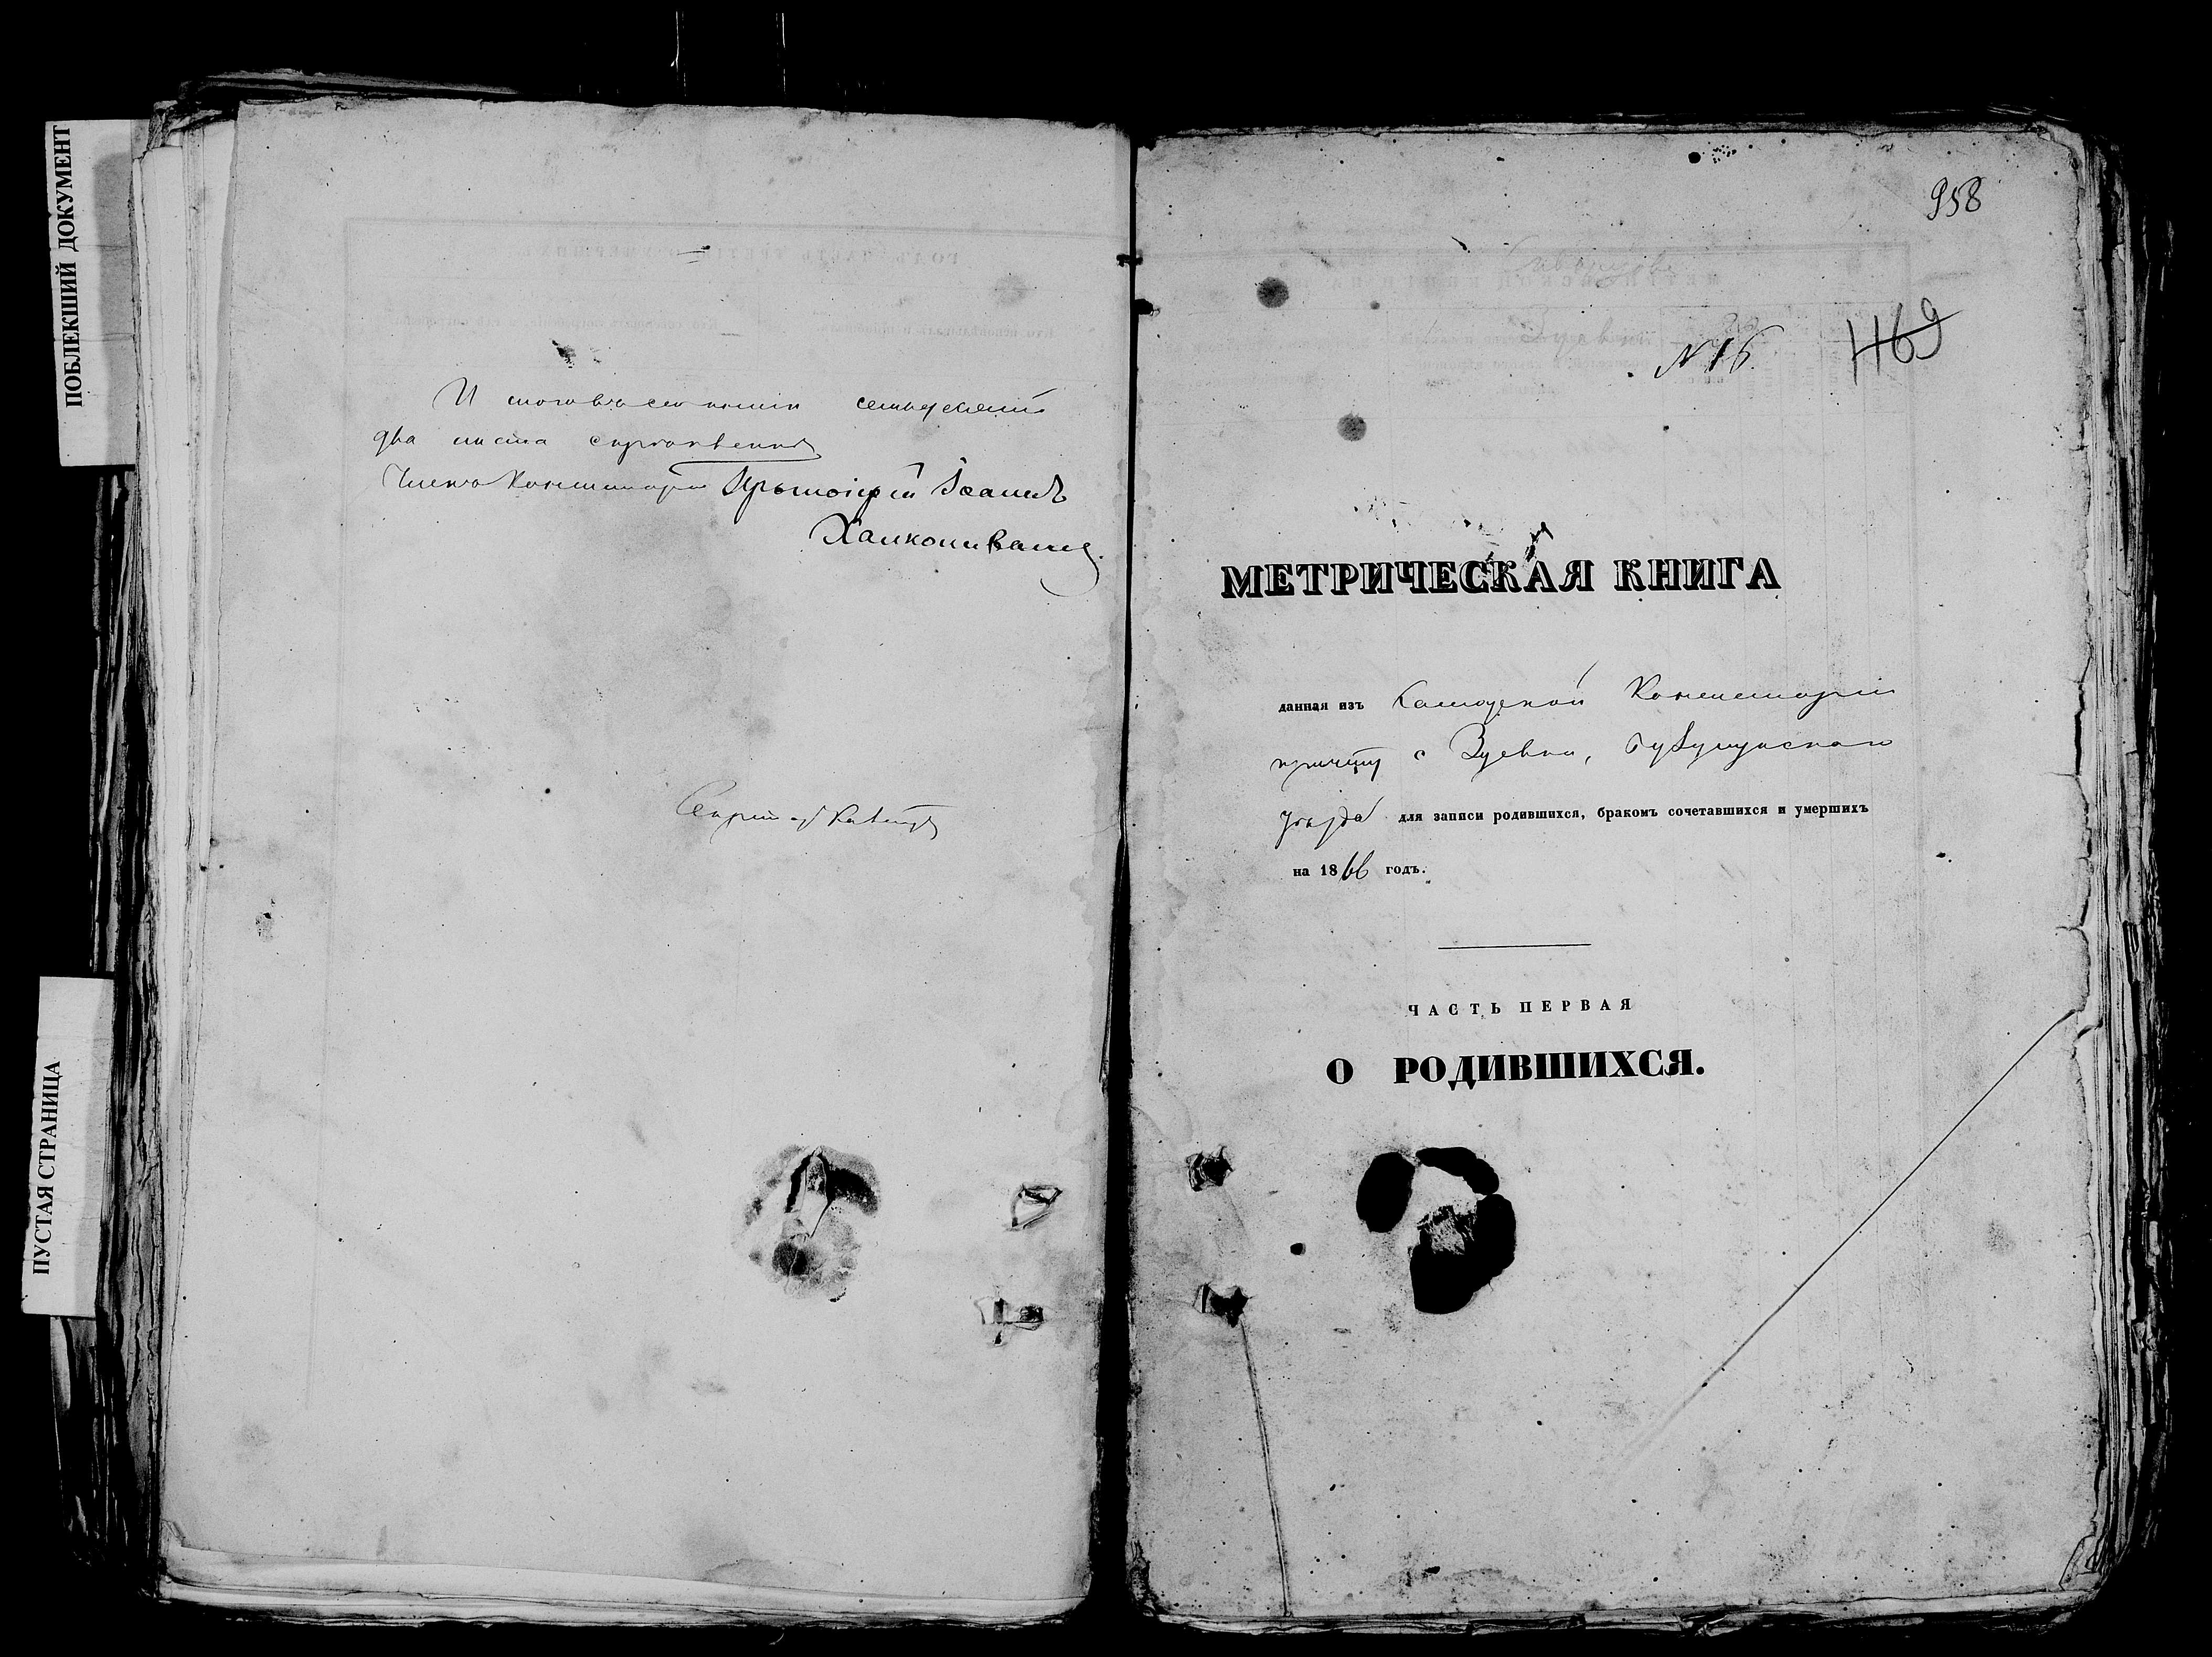 ПОБЛЕКШИЙ ДОКУМЕНТ
ПУСТАЯ СТРАНИЦА
семьдесятъ
два листа скрѣпленно
Членъ Консисторіи Протоіерей Іоаннъ
Халколивановъ.
Секретарь
958
N 16.
469
МЕТРИЧЕСКАЯ КНИГА
данная изъ Самарской Консисторіи
причту с Зуевки, Бузулукскаго
уѣзда для записи родившихся, бракомъ сочетавшихся и умершихъ
на 1866 годъ.
ЧАСТЬ ПЕРВАЯ
О РОДИВШИХСЯ.